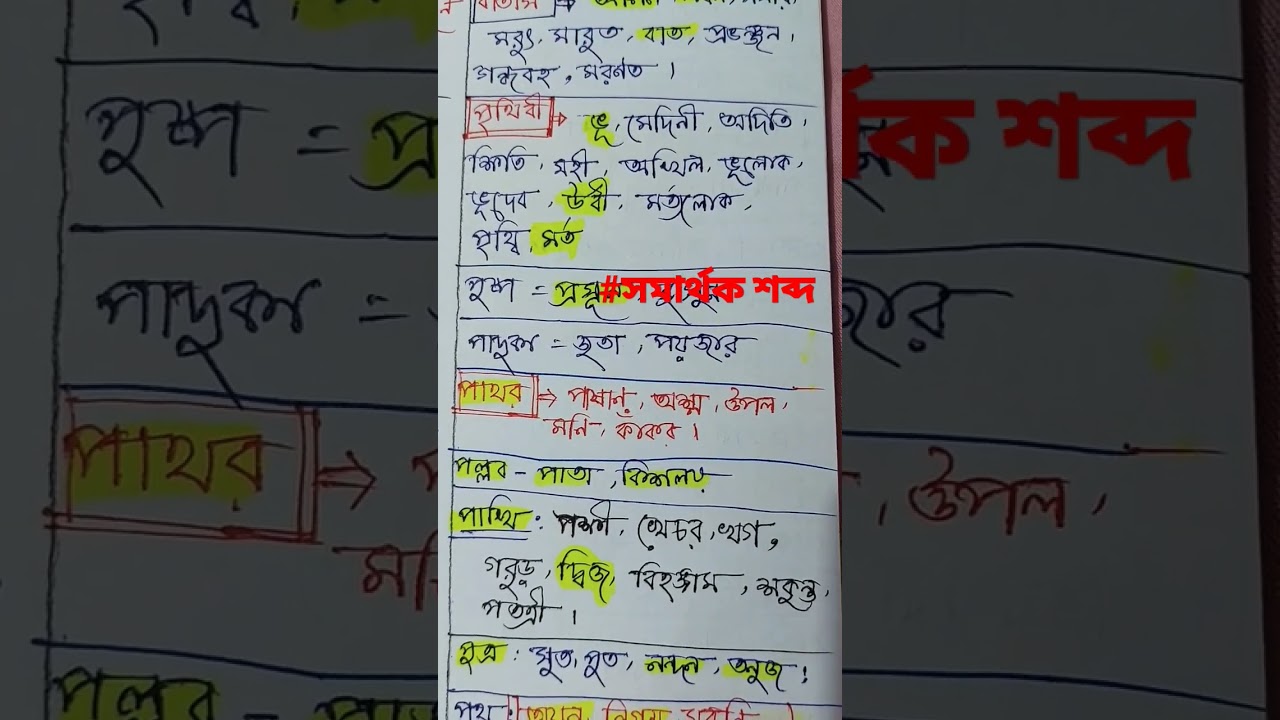 বাতাস →
মরুৎ, মারুত, বাত, প্রভঞ্জন,
গন্ধবহ,
পৃথিবী → ভূ, মেদিনী, অদিতি,
ক্ষিতি, মহী, অখিল, ভূলোক,
ভূদেব, উর্বী, মর্তলোক,
পৃথ্বি, মর্ত
পুষ্প = প্রসূন,
#সমার্থক শব্দ
পাদুকা = জুতা, পয়জার
পাথর ⇒ পাষাণ, অশ্ম, উপল,
মনি, কাঁকর।
পল্লব - পাতা, কিশলয়
পাখি : পক্ষী, খেচর, খগ,
গরুড়, দ্বিজ, বিহঙ্গম, শকুন্ত,
পতত্রী।
পুত্র : সুত, পুত, নন্দন, তনুজ,
পথ :
ক শব্দ
পুষ্প =
পাদুকা =
পাথর ⇒
উপল,
পল্লব -